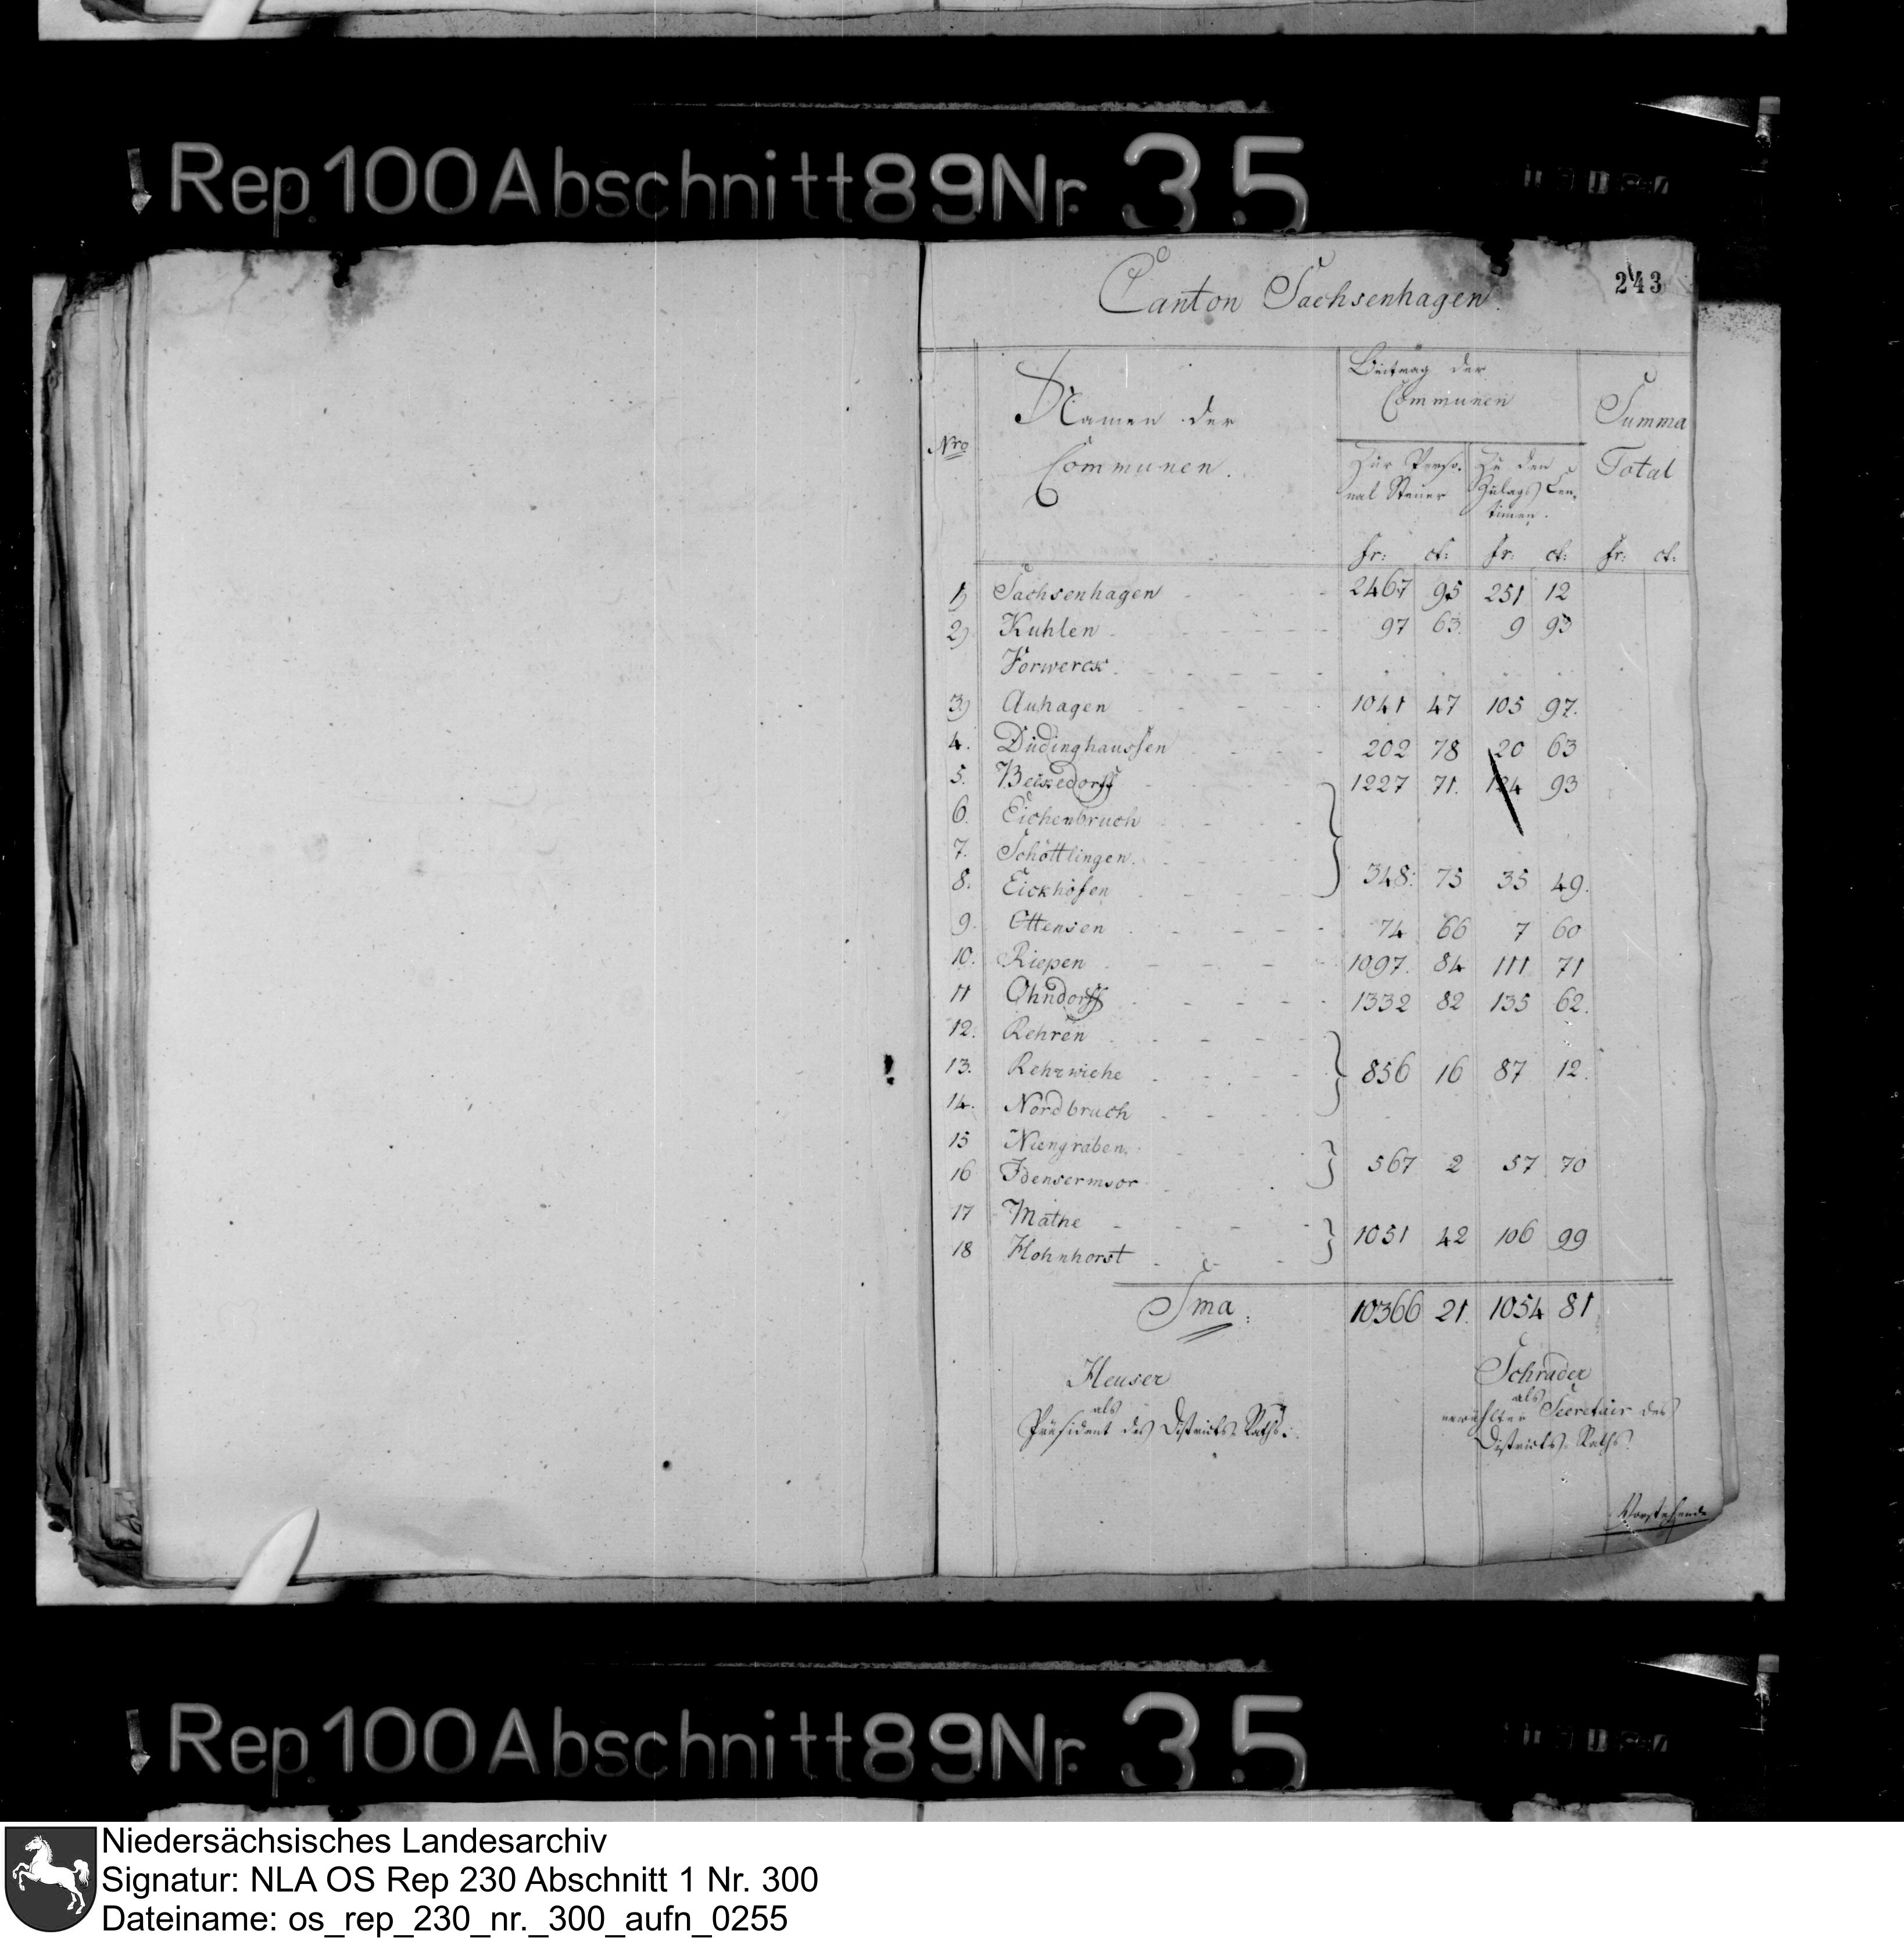 Rep. 100 Abschnitt 89 Nr. 35
243
Canton Sachsenhagen.
Nro
Namen der
Communen.
Beitrag der
Communen
Summa
Total
Zur Perso-
nal Steuer
Zu den
Zulags Cen-
timen.
fr: ct: fr: ct: fr: ct:
1) Sachsenhagen 2467 95 251 12
2) Kuhlen 97 63. 9 93
Vorwerck.
3) Auhagen 1041 47 105 97.
4. Düdinghaussen 202 78 20 63
5. Beckedorff 1227 71. 124 93
6. Eichenbruch
7. Schöttlingen.
8. Eickhöfen 348: 75 35 49.
9. Ottensen 74 66 7 60
10. Riepen 1097. 84 111 71
11 Ohndorff 1332 82 135 62.
12. Rehren
13. Rehrwiehe 856 16 87 12.
14. Nordbruch
15 Niengraben.
16 Idensermoor 567 2 57 70
17 Mathe
18 Hohnhorst 1051 42 106 99
Sma: 10366 21. 1054 81
Heuser
als
Präsident des Districts-Raths.
Schrader
als
erwählter Secretair des
Districts-Raths.
Vorstehende
Rep. 100 Abschnitt 89 Nr. 35
Niedersächsisches Landesarchiv
Signatur: NLA OS Rep 230 Abschnitt 1 Nr. 300
Dateiname: os_rep_230_nr._300_aufn_0255